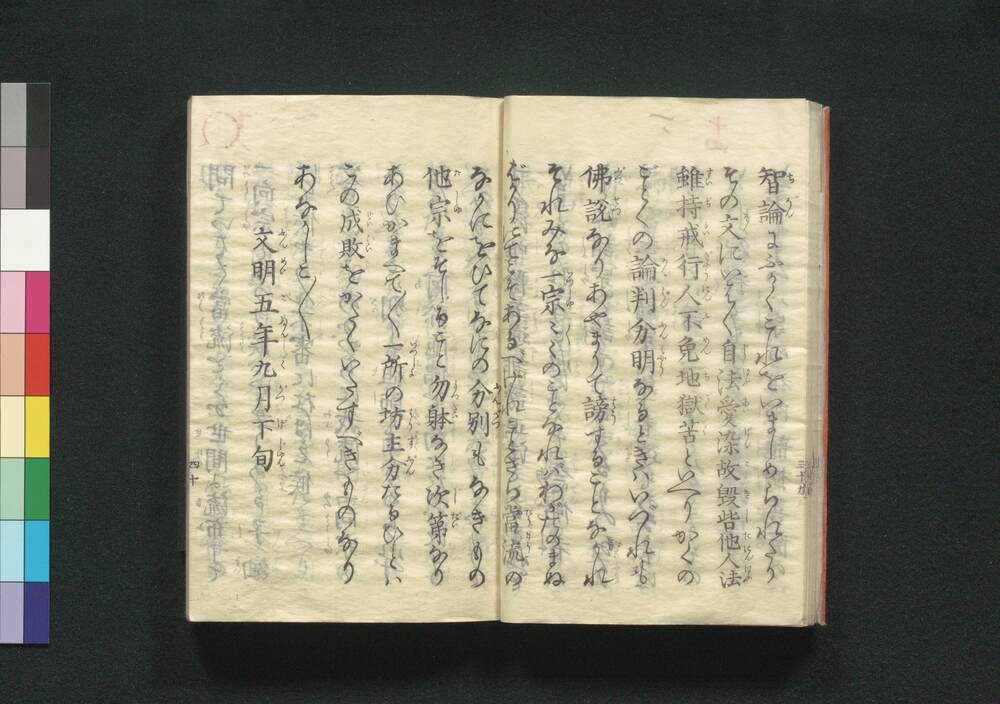 智論にふかくこれをいましめられたり
その文にいはく自法愛染故毀呰他人法
雖持戒行人不免地獄苦といへりかくの
ごとくの論判分明なるときはいづれも
佛説なりあやまりて謗することなかれ
それみな一宗々々のことなればわがたのまぬ
ばかりにてこそあるべけれことさら當流の
なかにをひてなにの分別もなきもの
他宗をそしること勿躰なき次第なり
あひかまへて〳〵一所の坊主分たるひとは
この成敗をかたくいたすべきものなり
あなかしこ〳〵
文明五年九月下旬
三十九
四十